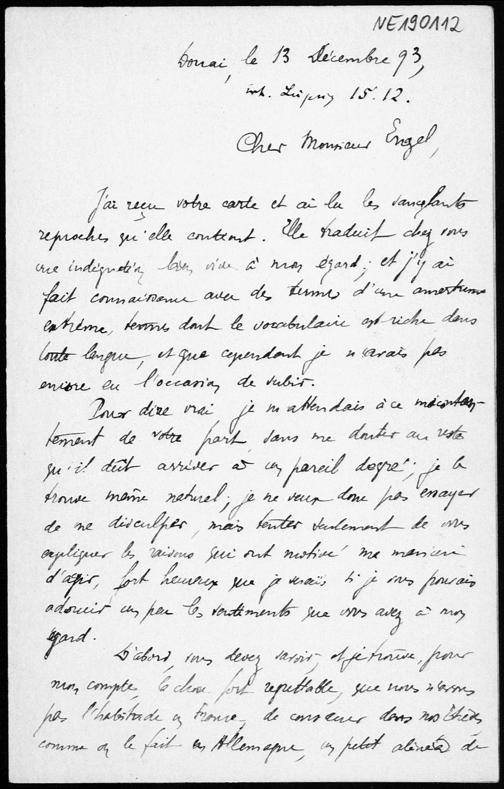 NE190112
Douai, le 13 Décembre 93,
15.12.
Cher Monsieur Engel,
J'ai reçu votre carte et ai lu les sanglants
reproches qu'elle contient. Elle traduit chez vous
une indignation bien vive à mon égard; et j'y ai
fait connaissance avec des termes d'une amertume
extrême, termes dont le vocabulaire est riche dans
toute langue, et que cependant je n'avais pas
encore eu l'occasion de subir.
Pour dire vrai je m'attendais à ce mécontentement
de votre part, sans me douter au reste
qu'il dût arriver à un pareil degré; je le
trouve même naturel; je ne veux donc pas essayer
de me disculper, mais tenter seulement de vous
expliquer les raisons qui ont motivé ma manière
d'agir, fort heureux que je serais si je vous pouvais
adoucir un peu les sentiments que vous avez à mon
égard.
D'abord, vous devez savoir, et je trouve, pour
mon compte, la chose fort regrettable, que nous n'avons
pas l'habitude en France, de consacrer dans nos thèses,
comme on le fait en Allemagne, un petit alinéa de